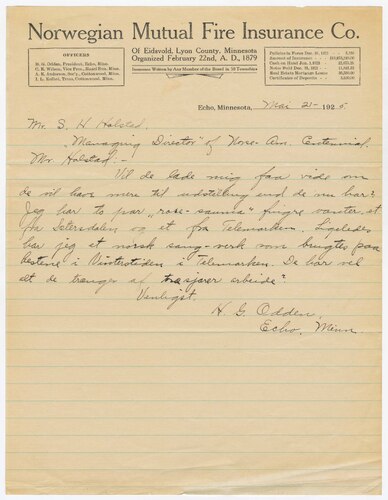 Norwegian Mutual Fire Insurance Co.
Of Eidsvold, Lyon County, Minnesota
Organized February 22nd, A. D., 1879
Insurance Written by Any Member of the Board in 10 Townships
OFFICERS
H. G. Odden, President, Echo, Minn.
C. K. Wilson, Vice Pres., Minn.
A. K. Anderson, Sec'y., Cottonwood, Minn.
J. L. Treas, Cottonwood, Minn.
Policies in Force Dec. 31, 192
Amount of Insurance
Cash on Hand Jan. 1, 192
Notes Dec. 31, 192
Real Estate Mortgage Loans
Certificates of Deposit
Echo, Minnesota, Mai 21 - 1925
Mr. S. H. Holstad.
"Managing Director" of Nors-Am. Centennial.
Mr. Holstad. -
Vil de lade mig faa vide om
de vil have mere til udstilling end de nu har?
Jeg har to par "rose-sauma" fingre vanter, et
fra Setersdalen og et fra Telemarken. Ligeledes
har jeg et norsk sang-verk som brugtes paa
hestene i Vinterstiden i Telemarken. De har vel
alt de trænger af arbeide?
Venligst.
H. G. Odden,
Echo, Minn